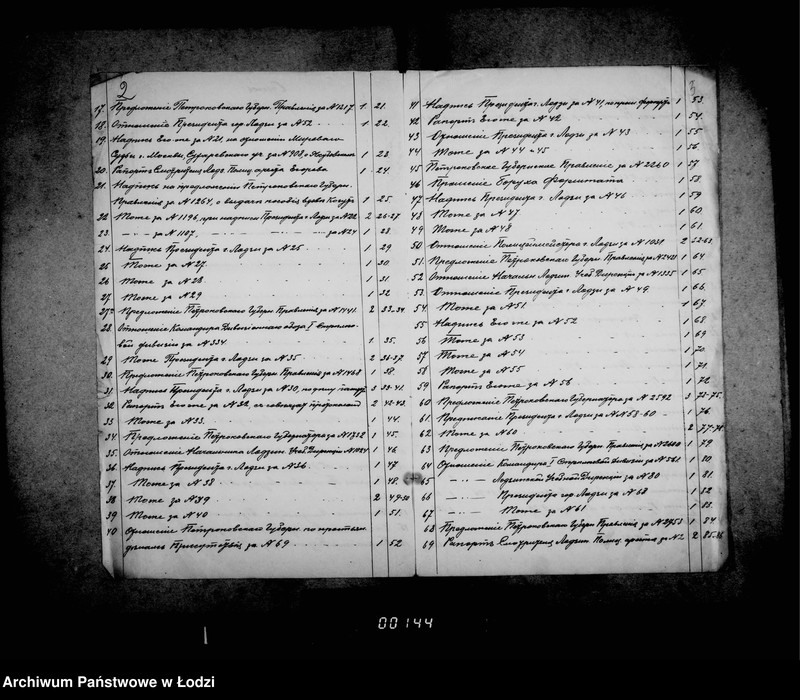 2
17. Предложеніе Петроковскаго Губерн. Правленія за № 1217 1 21.
18. Отношеніе Президента гор. Лодзи за № 52 1 22.
19. Надпись Его же за № 21, на отношеніи Мирового
Судьи г. Москвы, уч. за № 403 1 23
20. Рапортъ Лодз. Полиц. 1 24.
21. Надпись на предложеніи Петроковскаго Губерн.
Правленія за № 1264, о выдачѣ пособія вдовѣ 1 25.
22. Тоже за № 1196, при надписи Президента г. Лодзи за № 22 2 26-27
23. — за № 1107, — за № 24 1 28
24. Надпись Президента г. Лодзи за № 25 1 29
25 Тоже за № 27. 1 30
26 Тоже за № 28 1 31.
27. Тоже за № 29 1 32
27а Предложеніе Петроковскаго Губерн. Правленія за № 1441. 2 33-34.
28. Отношеніе Командира Дивизіоннаго обоза 1
дивизіи за № 334 1 35.
29 Тоже Президента г. Лодзи за № 35 2 36-37
30. Предложеніе Петроковскаго Губерн. Правленія за № 1468 1 38.
31. Надпись Президента г. Лодзи за № 30, 3 39-41.
32. Рапортъ Его же за № 32, 2 42-43.
33 Тоже за № 33. 1 44.
34. Предложеніе Петроковскаго Губернатора за № 1712 1 45.
35. Отношеніе Начальника Лодзин. Учеб. Дирекціи 1 46
36. Надпись Президента г. Лодзи за № 36. 1 47
37. Тоже за № 38 1 48.
38 Тоже за № 39 2 49-50
39 Тоже за № 40 1 51.
40 Отношеніе Петроковскаго Губерн. по крестьян.
дѣламъ Присутствія за № 69 1 52
3
41 Надпись Президента г. Лодзи за № 41, 1 53.
42 Рапортъ Его же за № 42 1 54.
43 Отношеніе Президента г. Лодзи за № 43 1 55
44 Тоже за № 44-45 1 56
45 Петроковское Губернское Правленіе за № 2260 1 57
46 Прошеніе Боруха 1 58
47 Надпись Президента г. Лодзи за № 46 1 59
48 Тоже за № 47 1 60
49 Тоже за № 48 1 61
50 Отношеніе Полиціймейстера г. Лодзи за № 1031 2 62-63.
51 Предложеніе Петроковскаго Губерн. Правленія за 1 64
52 Отношеніе Началн. Лодзин. Учеб. Дирекціи за № 1335 1 65
53. Отношеніе Президента г. Лодзи за № 49 1 66.
54 Тоже за № 51 1 67
55 Надпись Его же за № 52 1 68
56 Тоже за № 53 1 69
57 Тоже за № 54 1 70.
58 Тоже за № 55 1 71.
59 Рапортъ Его же за № 56 1 72
60 Предложеніе Петроковскаго Губернатора за № 2592 3 73-75.
61 Предписаніе Президента г. Лодзи за № 58-60 1 76
62 Тоже за № 60 2 77-78
63 Предложеніе Петроковскаго Губерн. Правленія за 1 79
64 Отношеніе Командира 1 дивизіи за № 581 1 80
65 — Лодзинской Учебной Дирекціи за № 80 1 81.
66 — Президента гор. Лодзи за № 68 1 82
67 — Тоже за № 61 1 83.
68 Предложеніе Петроковскаго Губерн. Правленія за № 2953 1 84.
69 Рапортъ Лодзин. Полиц. за № 2 2 85-86
00144
Archiwum Państwowe w Łodzi